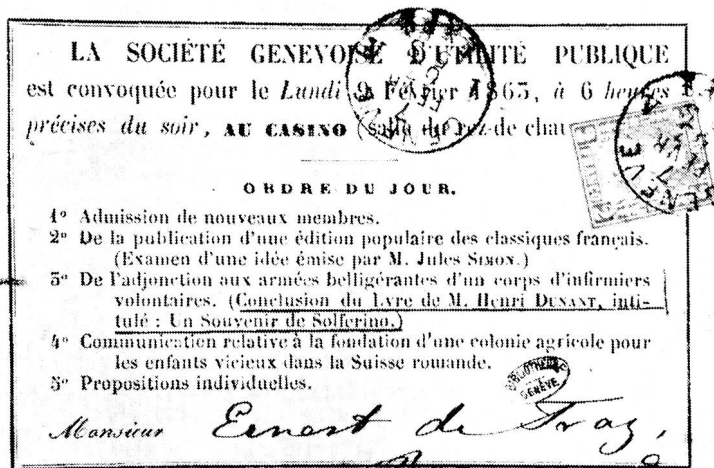 LA SOCIÉTÉ GENEVOISE D'UTILITÉ PUBLIQUE
est convoquée pour le Lundi 9 Février 1863, à 6 heures
précises du soir, AU CASINO (salle du rez-de chau
ORDRE DU JOUR.
1º Admission de nouveaux membres.
2º De la publication d'une édition populaire des classiques français.
(Examen d'une idée émise par M. Jules SIMON.)
3º De l'adjonction aux armées belligérantes d'un corps d'infirmiers
volontaires. (Conclusion du Lvre de M. Henri DUNANT, inti-
tulé : Un Souvenir de Solferino.)
4º Communication relative à la fondation d'une colonie agricole pour
les enfants vicieux dans la Suisse romande.
5º Propositions individuelles.
BIBLIOTHÈQUE
GENÈVE
Monsieur Ernest de Traz,
GENÈVE